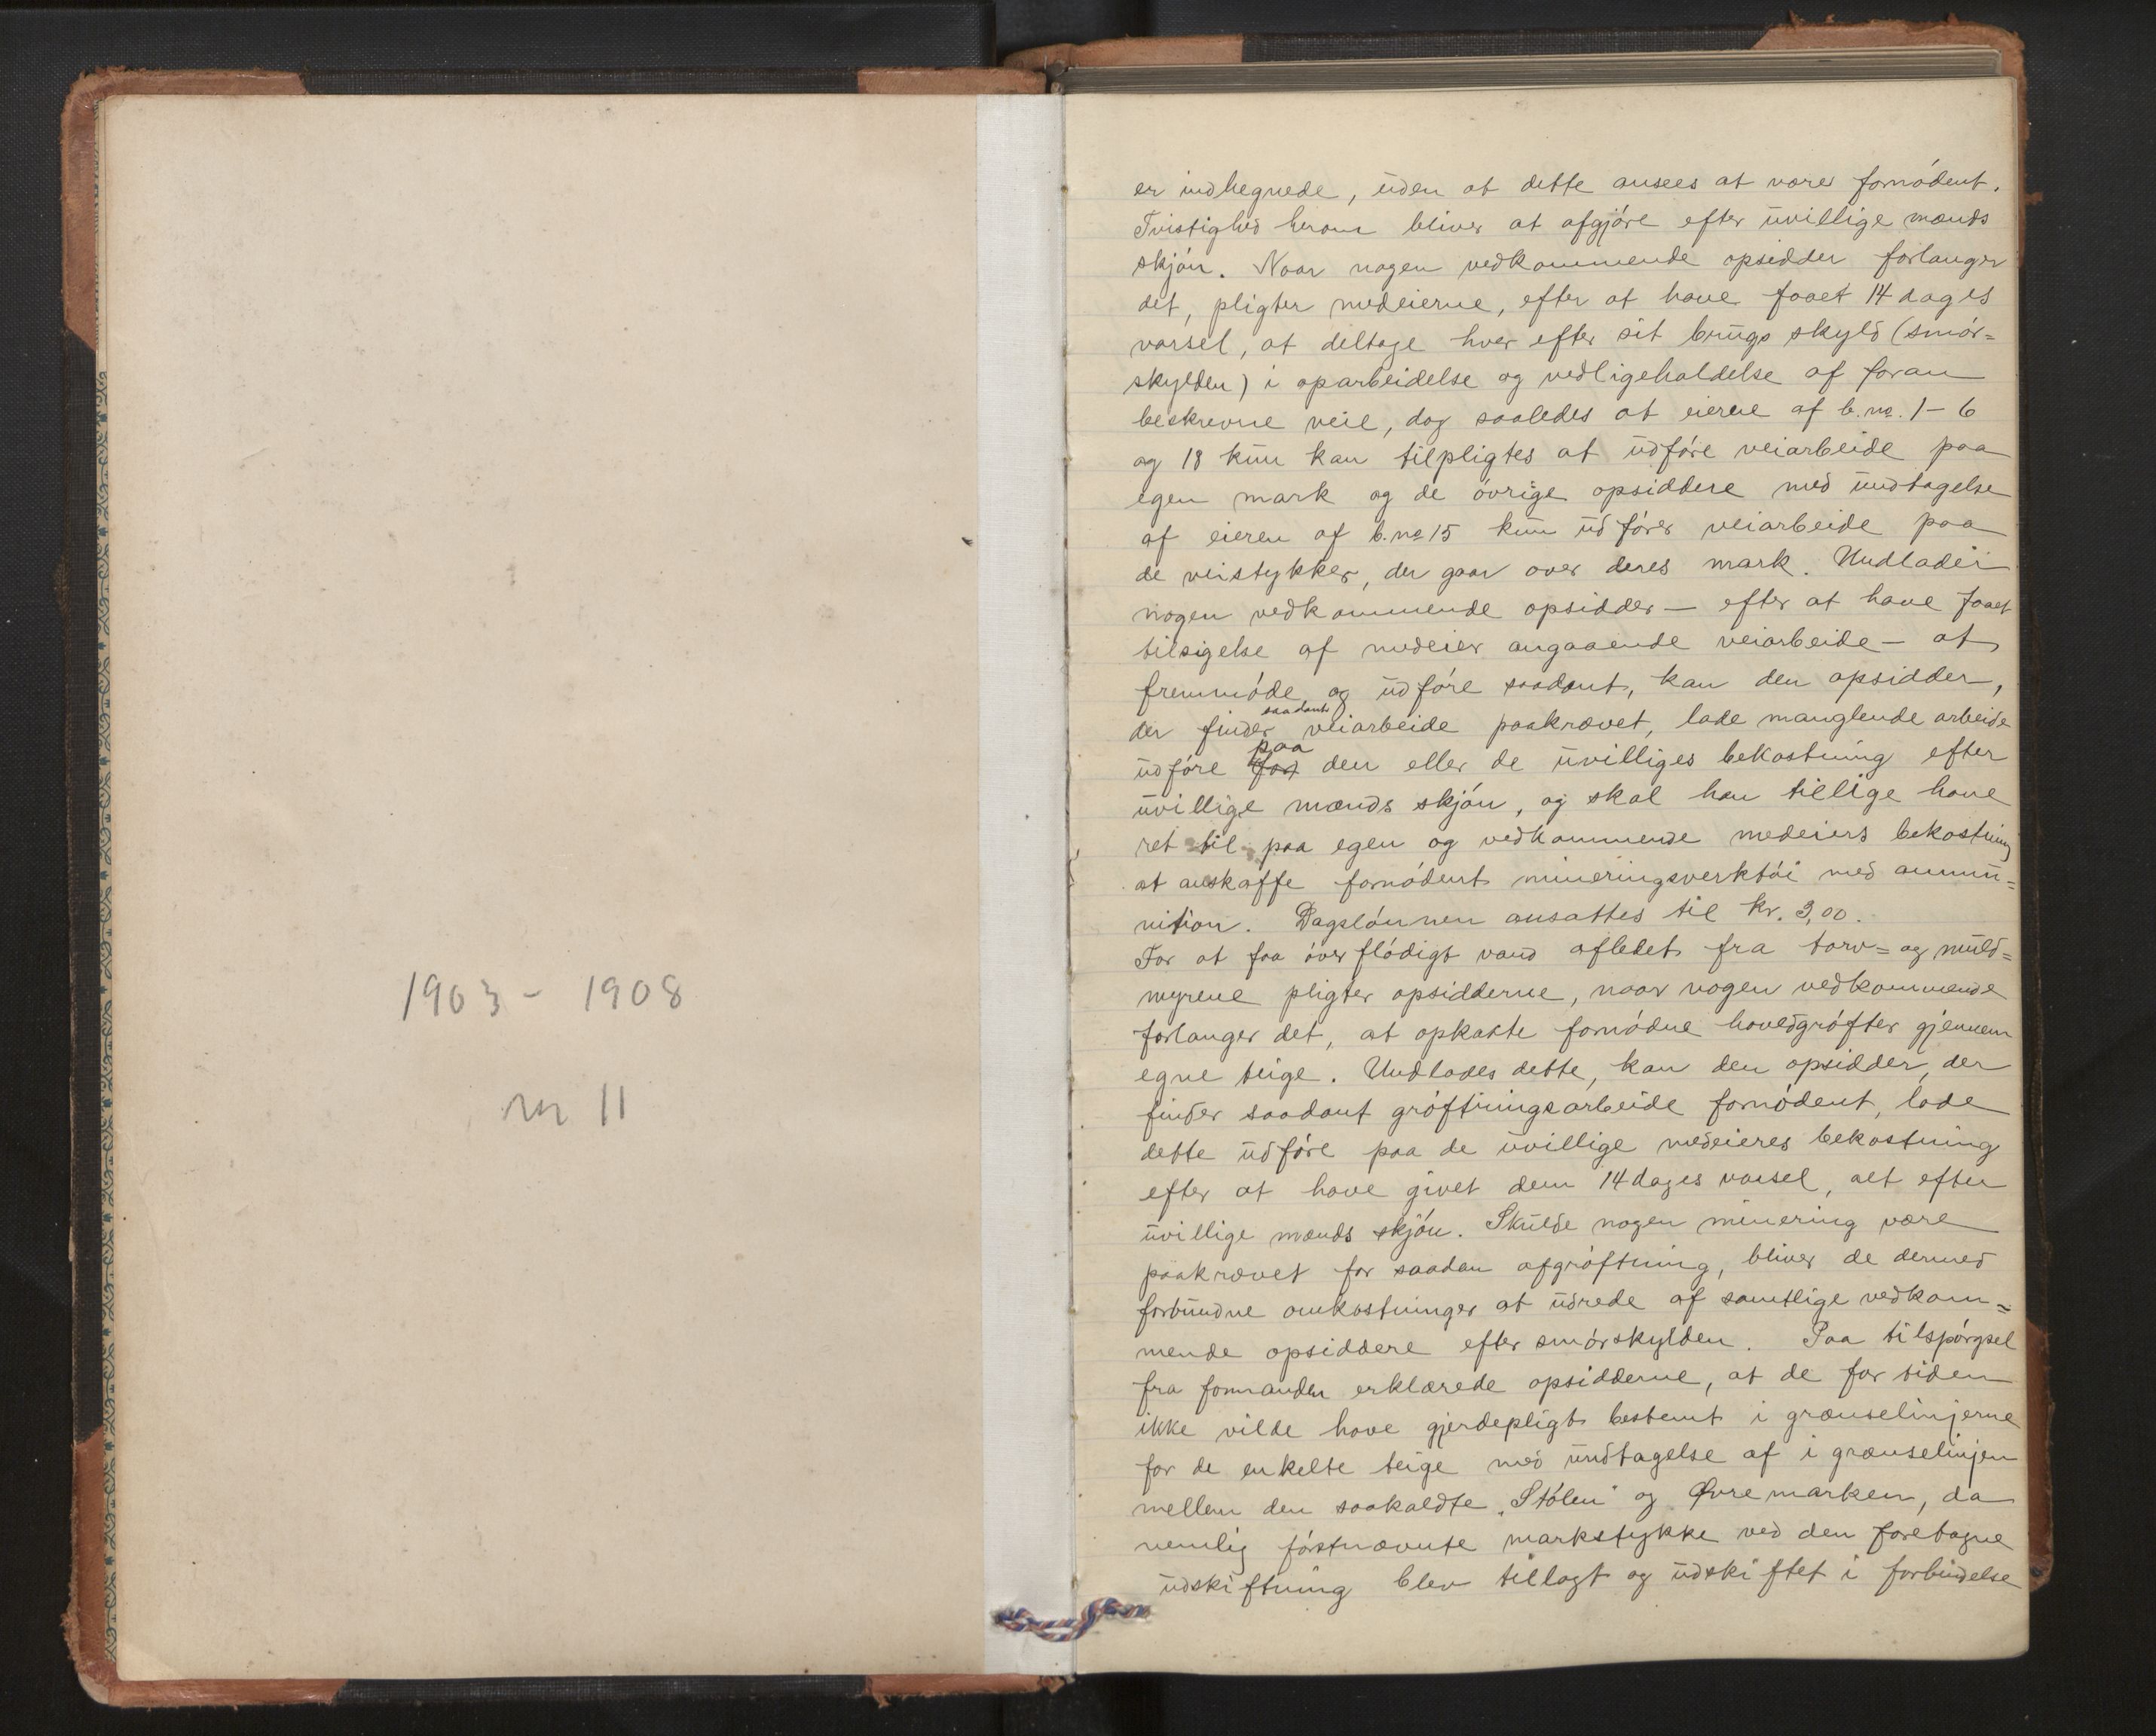 1903 - 1908
nr 11
er indhegnede, uden at dette ansees at være fornødent.
Tvistighed herom bliver at afgjøre efter uvillige mænds
skjøn. Naar nogen vedkommende opsidder forlanger
det, pligter medeierne, efter at have faaet 14 dages
varsel, at deltage hver efter sit brugs skyld (smør=
skylden) i oparbeidelse og vedligeholdelse af foran
beskrevne veie, dog saaledes at eierne af b.no. 1-6
og 18 kun kan tilpligtes at udføre veiarbeide paa
egen mark og de øvrige opsiddere med undtagelse
af eieren af b.no 15 kun udfører veiarbeide paa
de veistykker, der gaar over deres mark. Undlader
nogen vedkommende opsidder - efter at have faaet
tilsigelse af medeier angaaende veiarbeide - at
fremmøde og udføre saadant, kan den opsidder,
der finder saadant veiarbeide paakrævet, lade manglende arbeide
udføre for paa den eller de uvilliges bekostning efter
uvillige mænds skjøn, og skal han tillige have
ret til paa egen og vedkommende medeiers bekostning
at anskaffe fornødent mineringsverktøi med ammu=
nition. Dagslønnen ansattes til kr. 3,00.
For at faa overflødigt vand afledet fra torv= og muld=
myrene pligter opsidderne, naar nogen vedkommende
forlanger det, at opkaste fornødne hovedgrøfter gjennem
egne teige. Undlades dette, kan den opsidder, der
finder saadant grøftningsarbeide fornødent, lade
dette udføre paa de uvillige medeieres bekostning
efter at have givet dem 14 dages varsel, alt efter
uvillige mænds skjøn. Skulde nogen minering være
paakrævet for saadan afgrøftning, bliver de dermed
forbundne omkostninger at udrede af samtlige vedkom=
mende opsiddere efter smørskylden. Paa tilspørgsel
fra formanden erklærede opsidderne, at de for tiden
ikke vilde have gjerdepligt bestemt i grænselinjerne
for de enkelte teige med undtagelse af i grænselinjen
mellem den saakaldte "Stølen" og Øvremarken, da
nemlig førstnævnte markstykke ved den foretagne
udskiftning blev tillagt og udskiftet i forbindelse